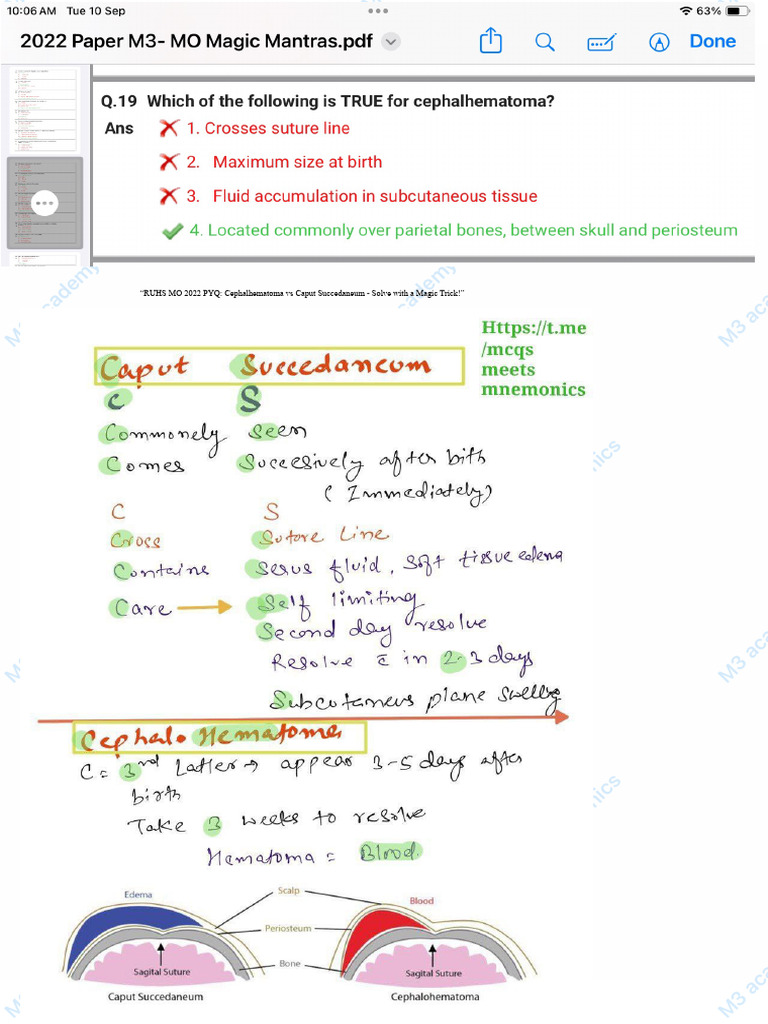 10:06 AM Tue 10 Sep
63%
2022 Paper M3- MO Magic Mantras.pdf
Done
Q.19 Which of the following is TRUE for cephalhematoma?
Ans 1. Crosses suture line
2. Maximum size at birth
3. Fluid accumulation in subcutaneous tissue
4. Located commonly over parietal bones, between skull and periosteum
"RUHS MO 2022 PYQ: Cephalhematoma vs Caput Succedaneum - Solve with a Magic Trick!"
Https://t.me
/mcqs
meets
mnemonics
Caput Succedaneum
C S
Commonely seen
Comes Succesively after bith
( Immediately)
C S
Cross Suture Line
Contains Serus fluid, soft tissue edena
Care → Self limiting
Second day resolve
Resolve c̄ in 2-3 days
Subcutaneus plane swelling
Cephalo Hematoma
C = 3rd Latter → appear 3-5 days after
birth
Take 3 weeks to resolve
Hematoma = Blood.
Edema
Scalp
Blood
Periosteum
Bone
Sagital Suture
Sagital Suture
Caput Succedaneum
Cephalohematoma